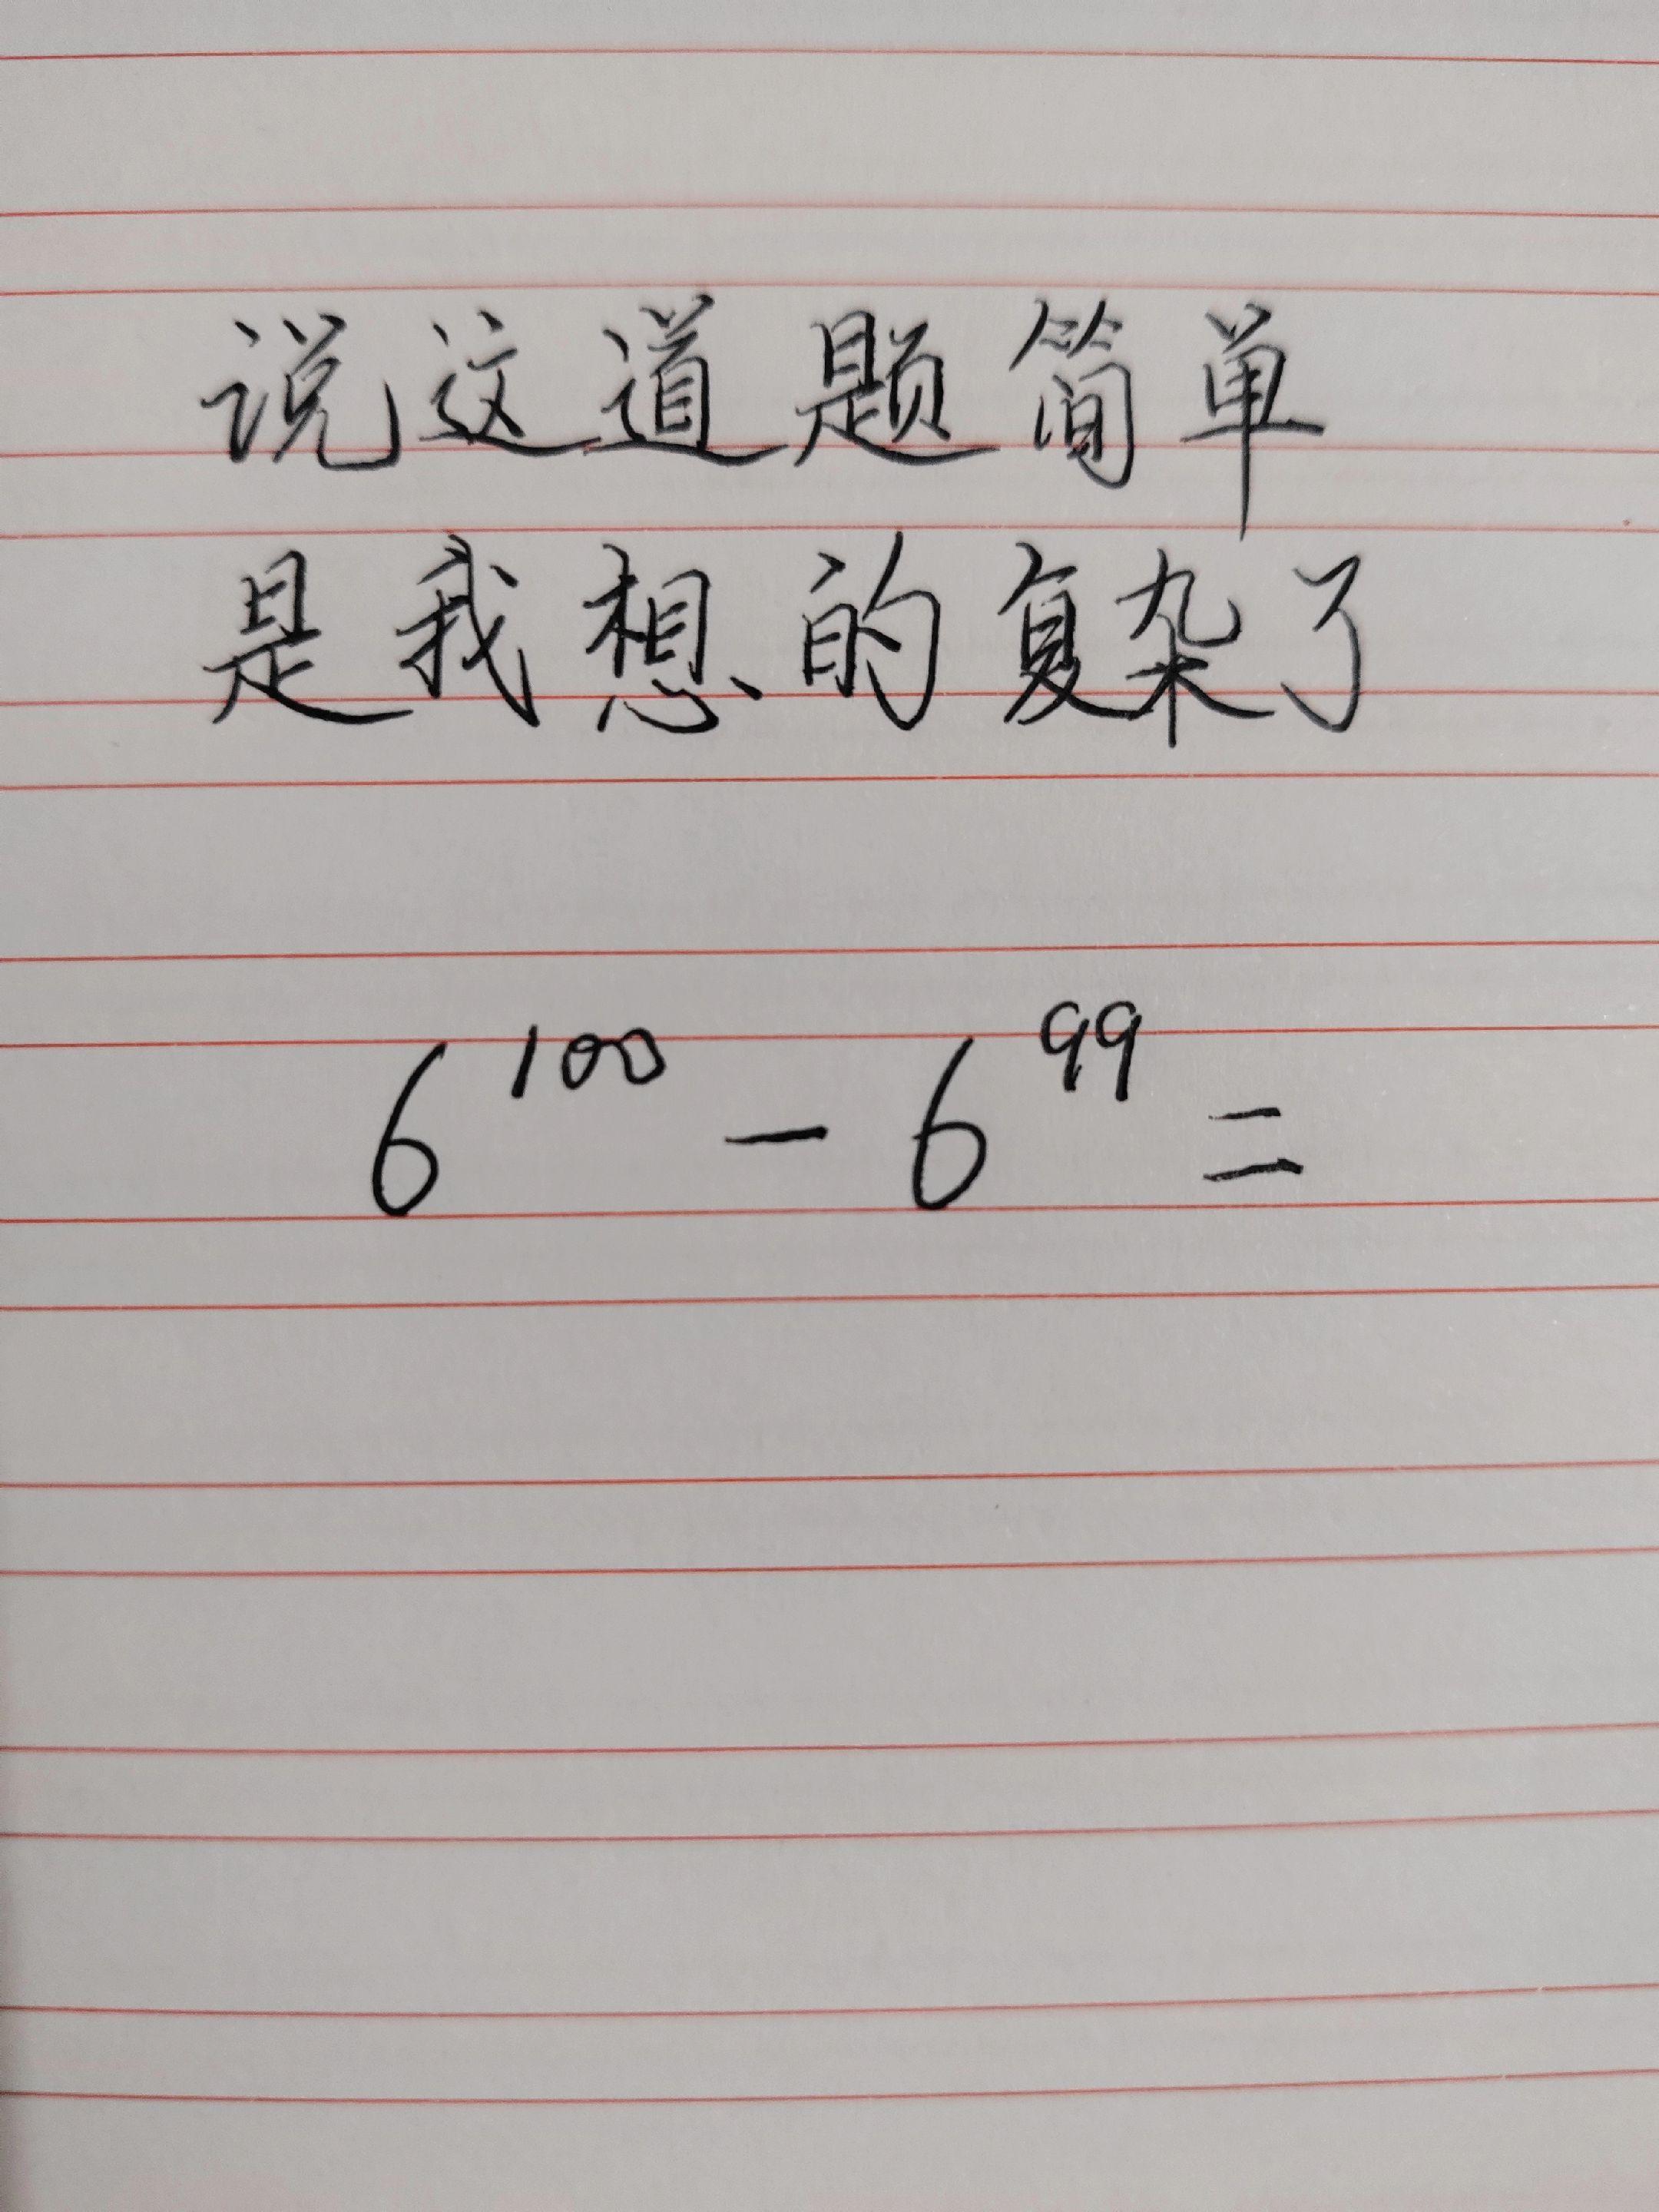 说这道题简单
是我想的复杂了
6^100 - 6^99 =